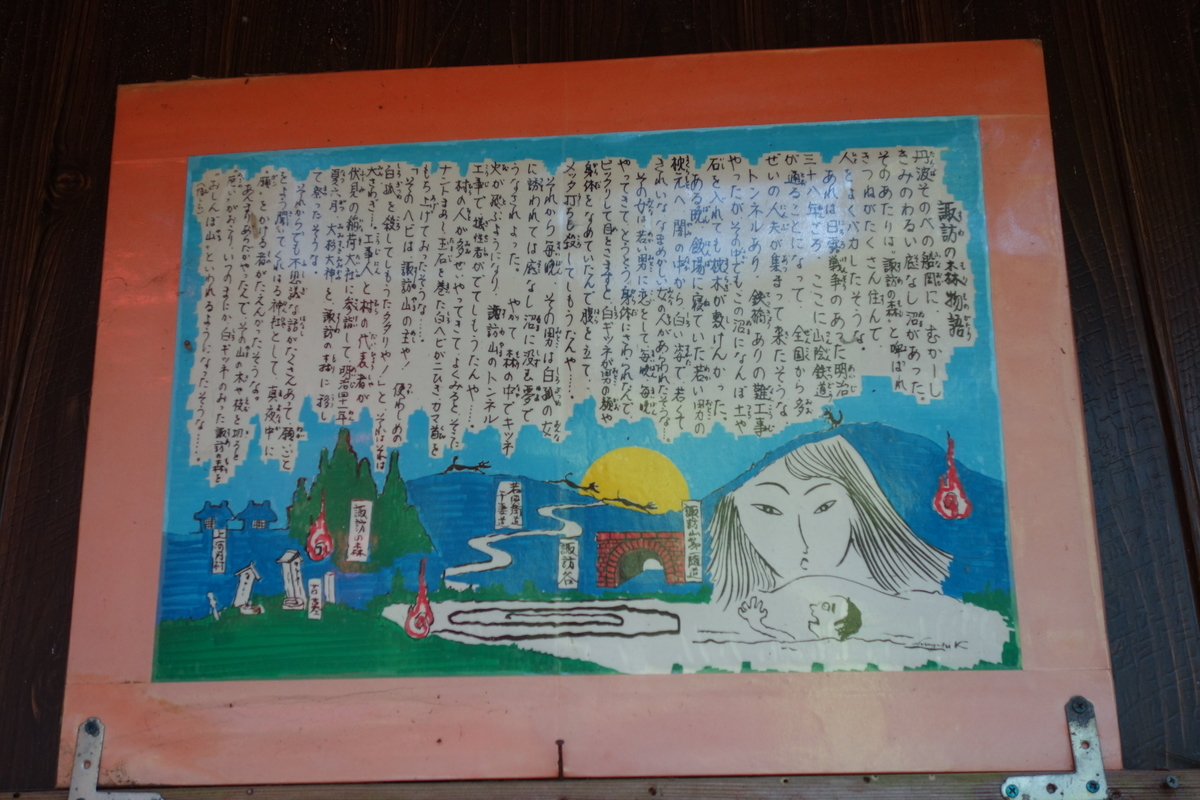 諏訪の森物語
丹波そのべの船岡に、むかーし
きみのわるい底なし沼があった
そのあたりは諏訪の森と呼ばれ
きつねがたくさん住んで
人をよくバカしたそうな。
あれは日露戦争のあった明治
三十八年ごろ、ここに山陰鉄道
が通ることになって、全国から多
ぜいの人夫が集まって来たそうな。
トンネルあり 鉄橋ありの難工事
やったがその中でもこの沼になんぼ土や
石を入れても枕木が敷けんかった。
ある晩、飯場に寝ていた若い男の
枕元へ 闇の中から白い姿で若くて
きれいななまめかしい女の人があらわれたそうな。
その女は若い男に恋をして、毎晩毎晩
やってきて とうとう 身体にさわられたんで
ビックリして目をさますと、白ギツネが男の顔や
身体をなめていたんで腹を立て
メッタ打ち 殺してしもうたんや……
それから毎晩 その男は白狐の女
に誘われては底なし沼に没む夢で
うなされよった。 やがて 森の中でキツネ
火が飛ぶようになり、諏訪山のトンネル
工事で犠牲者がでてしもうたんや……
村の人が多ぜいやってきてよくみると そこに
ナント まあー 玉石を巻た白ヘビが二ひきカマ首を
もち上げておったそうな……
「そのヘビは諏訪山の主や！ 使わしめの
白狐を殺してしもうたタタリや！」と サアそれは
大さわぎ！ 工事人と村の代表者が
伏見の稲荷大社に参詣して、明治四十二年
夏六月、大杉大神を諏訪の森に移し
て祭ったそうな。
それからでも不思議な話がたくさんあって願ごと
をよう聞いてくれはる神社として、真夜中に
願をかける者がたえんかったそうな。
あんまりあらたかやったんで、その山の木や枝を切ると
いつのまにか白ギツネのおった諏訪の森を
おしん山といわれるようになったそうな……
諏訪の森
上河内村
古墓
若狭街道
諏訪谷
諏訪山